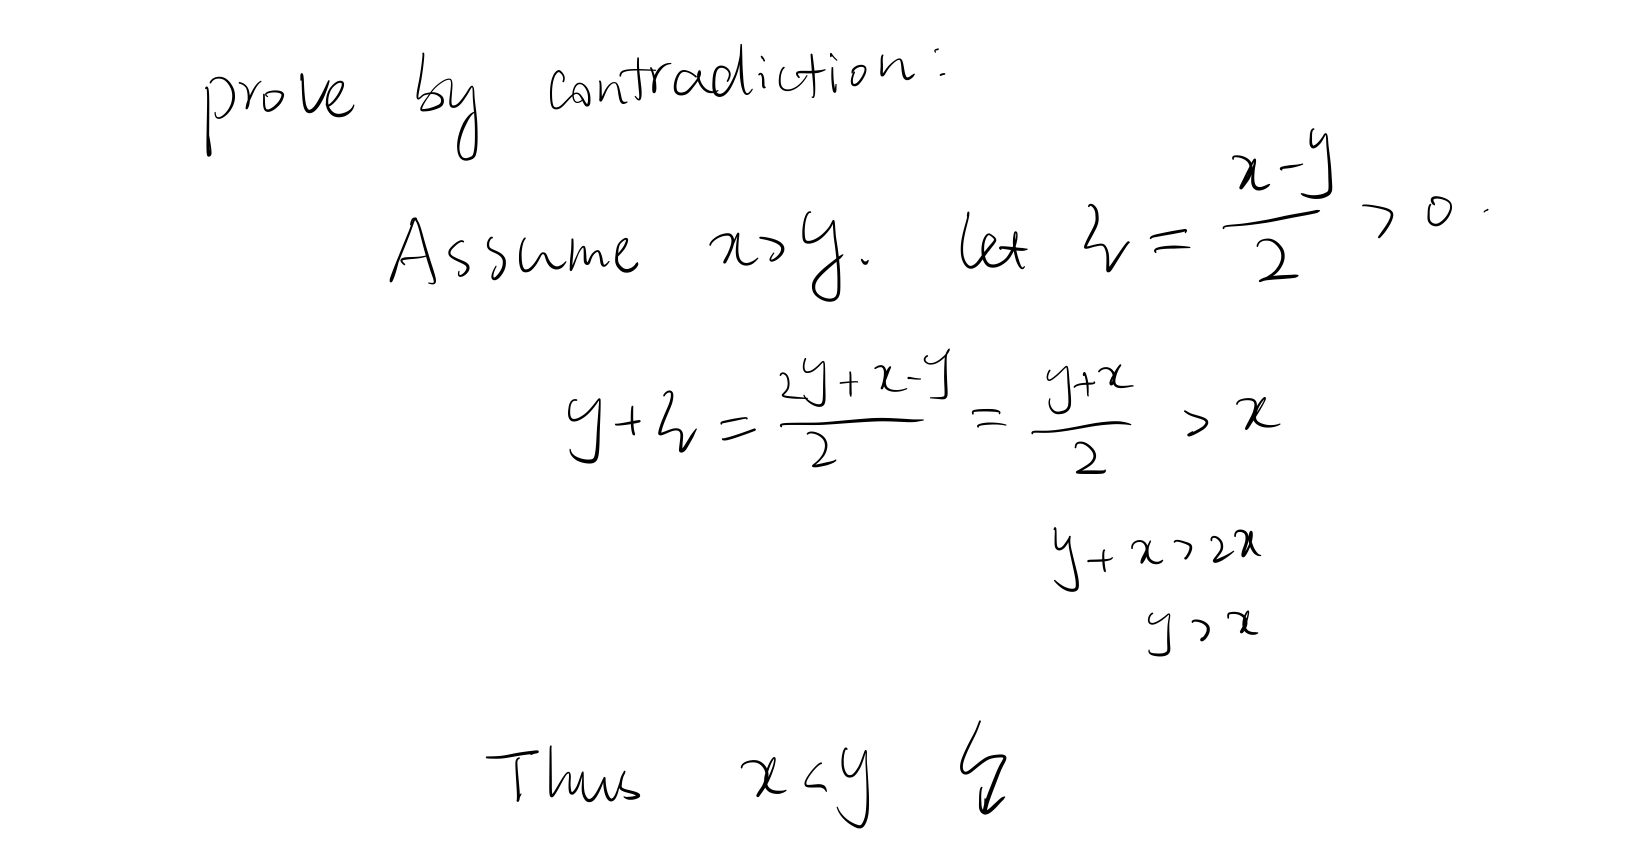 prove by contradiction:
Assume x>y. let h = \frac{x-y}{2} > 0.
y+h = \frac{2y+x-y}{2} = \frac{y+x}{2} > x
y+x > 2x
y > x
Thus x<y ↯